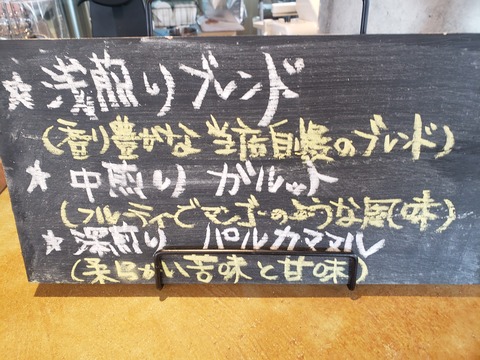 ★浅煎りブレンド
(香り豊かな 当店自慢のブレンド)
★中煎り ガルット
(フルーティでマンゴーのような風味)
★深煎り パルカママル
(柔らかい苦味と甘味)